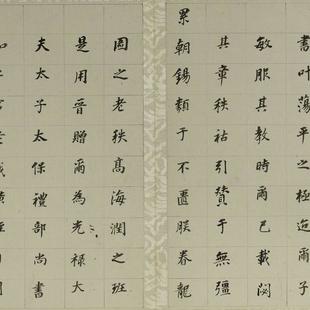 書叶蕩平之極迨爾子
敏服其教時爾已載閟
其章秩祜引贊于無疆
累朝錫類于不匱朕眷龍
國之老秩高海潤之班
是用晉贈爾為光祿大
夫太子太保禮部尚書